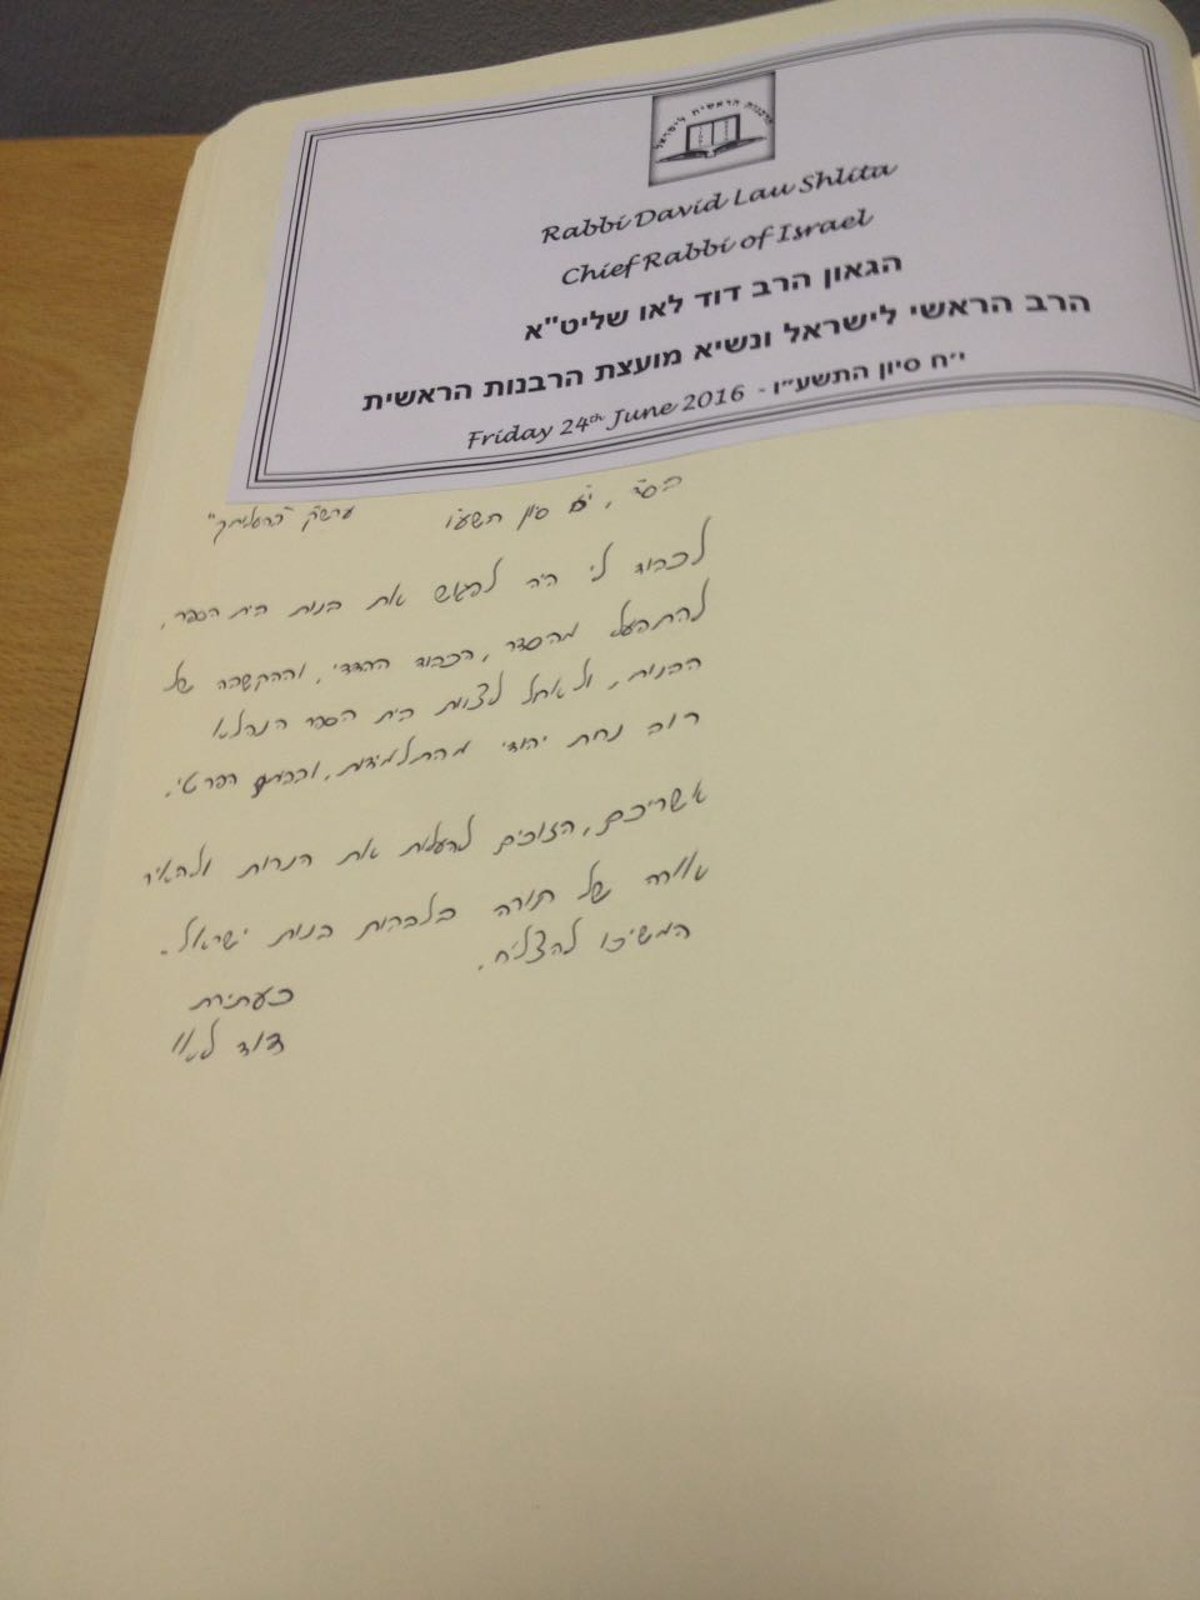 הרבנות הראשית לישראל
Rabbi David Lau Shlita
Chief Rabbi of Israel
הגאון הרב דוד לאו שליט"א
הרב הראשי לישראל ונשיא מועצת הרבנות הראשית
Friday 24th June 2016 - י״ח סיון התשע״ו
בס"ד, י"ח סיון תשע"ו ערש"ק "בהעלותך"
לכבוד לי היה לפגוש את בנות בית הספר,
להתפעל מהסדר, הכבוד ההדדי, וההקשבה של
הבנות, ולאחל לצוות בית הספר הנפלא
רוב נחת יהודי מהתלמידות, ובבית הפרטי.
אשריכם, הזוכים להעלות את הנרות ולהאיר
אורה של תורה בלבבות בנות ישראל.
המשיכו להצליח.
בעתירה
דוד לאו